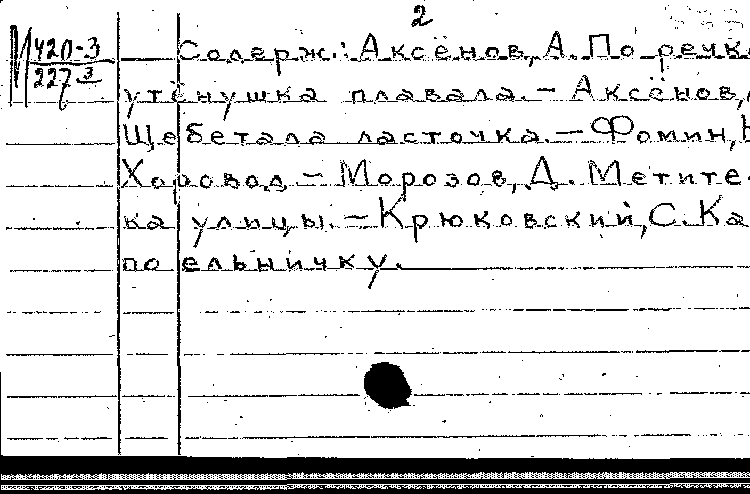 2
М 420-3
227 3
Содерж.: Аксёнов, А. По речке
утёнушка плавала. – Аксёнов,
Щебетала ласточка. – Фомин, Н
Хоровод – Морозов, Д. Метите-
ка улицы. – Крюковский, С. Ка
по ельничку.